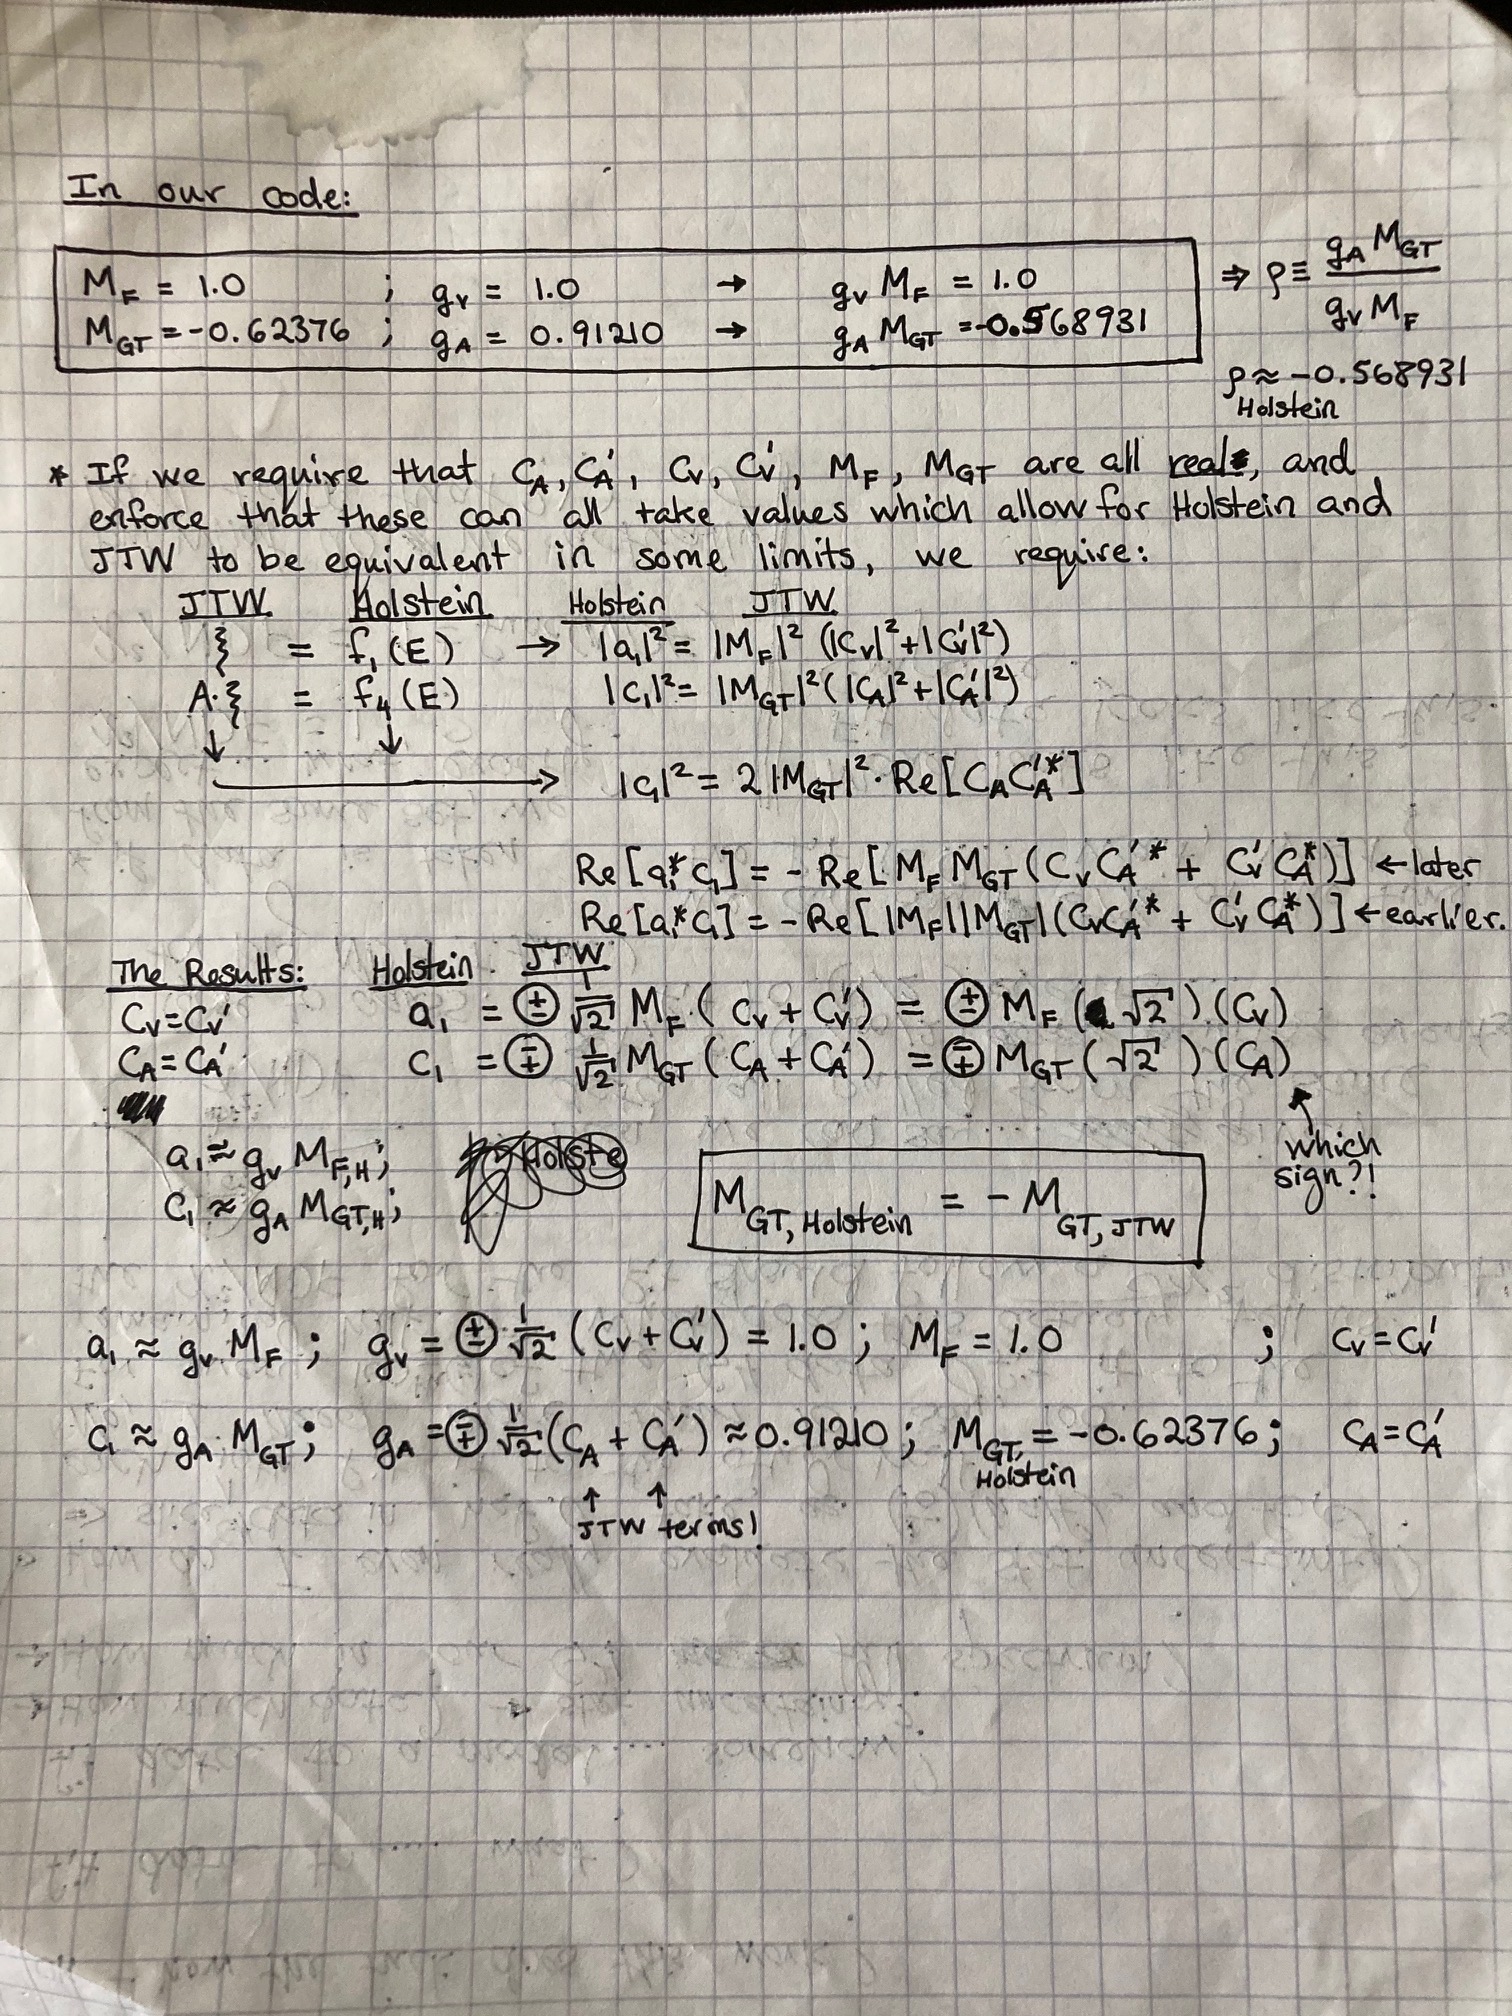 In our code:
M_F = 1.0 ; g_V = 1.0 → g_V M_F = 1.0 ⇒ ρ ≡ g_A M_GT / g_V M_F
M_GT = -0.62376 ; g_A = 0.91210 → g_A M_GT = -0.568931
ρ ≈ -0.568931
Holstein
* If we require that C_A, C_A', C_V, C_V', M_F, M_GT are all real, and
enforce that these can all take values which allow for Holstein and
JTW to be equivalent in some limits, we require:
JTW Holstein Holstein JTW
ξ = f₁(E) → |a₁|² = |M_F|² (|C_V|² + |C_V'|²)
A·ξ = f₄(E) |c₁|² = |M_GT|² (|C_A|² + |C_A'|²)
↓ ↓
→ |c₁|² = 2 |M_GT|² · Re[C_A C_A'*]
Re[a₁* c₁] = - Re[M_F M_GT (C_V C_A'* + C_V' C_A*)] ← later
Re[a₁* c₁] = - Re[|M_F||M_GT| (C_V C_A'* + C_V' C_A*)] ← earlier.
The Results: Holstein JTW
C_V = C_V' a₁ = ± 1/√2 M_F (C_V + C_V') = ± M_F (√2) (C_V)
C_A = C_A' c₁ = ∓ 1/√2 M_GT (C_A + C_A') = ∓ M_GT (√2) (C_A)
↑
which
sign?!
a₁ ≈ g_V M_F,H;
c₁ ≈ g_A M_GT,H;
M_GT, Holstein = - M_GT, JTW
a₁ ≈ g_V M_F ; g_V = ± 1/√2 (C_V + C_V') = 1.0 ; M_F = 1.0 ; C_V = C_V'
c₁ ≈ g_A M_GT ; g_A = ∓ 1/√2 (C_A + C_A') ≈ 0.91210 ; M_GT, Holstein = -0.62376 ; C_A = C_A'
↑ ↑
JTW terms!